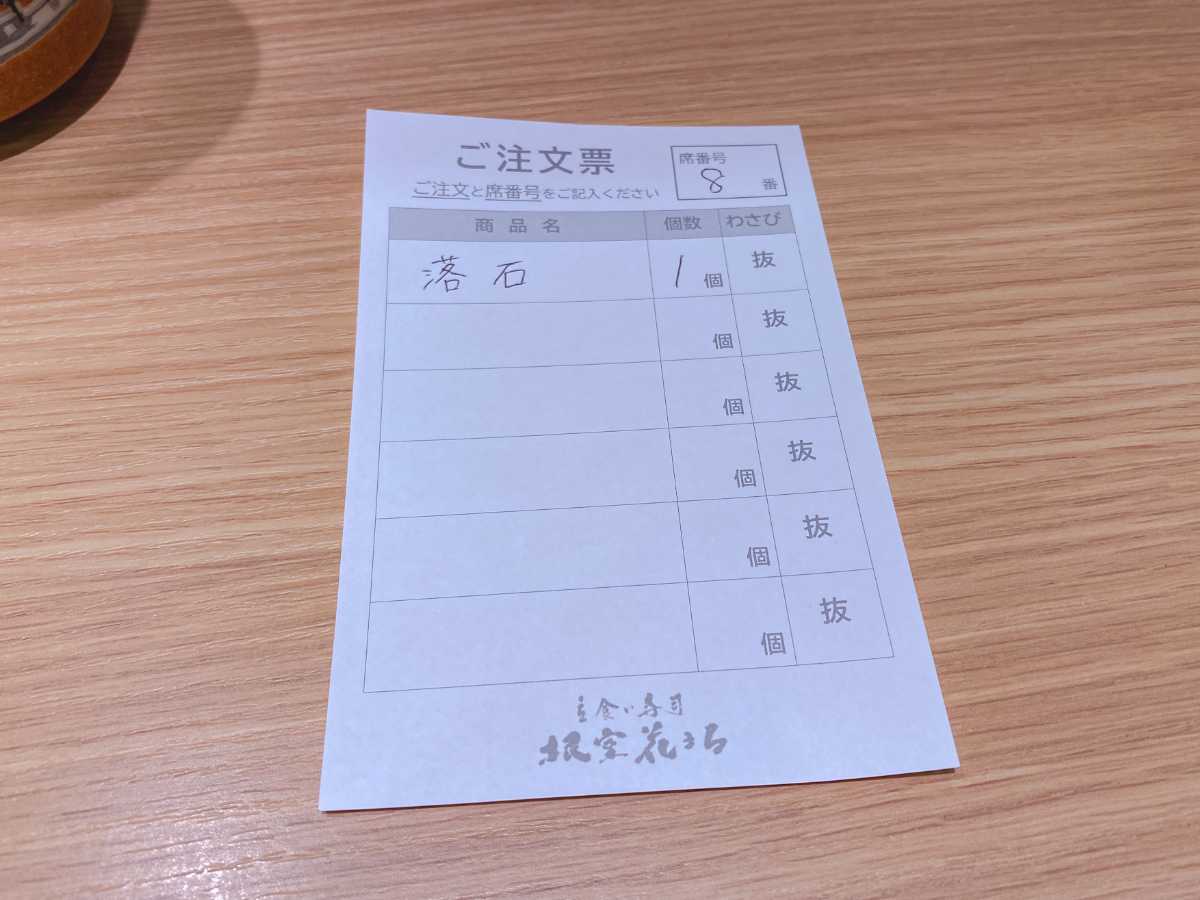 ご注文票
席番号
8 番
ご注文と席番号をご記入ください
商品名 個数 わさび
落石 1個 抜
個 抜
個 抜
個 抜
個 抜
個 抜
立食い寿司
根室花まる